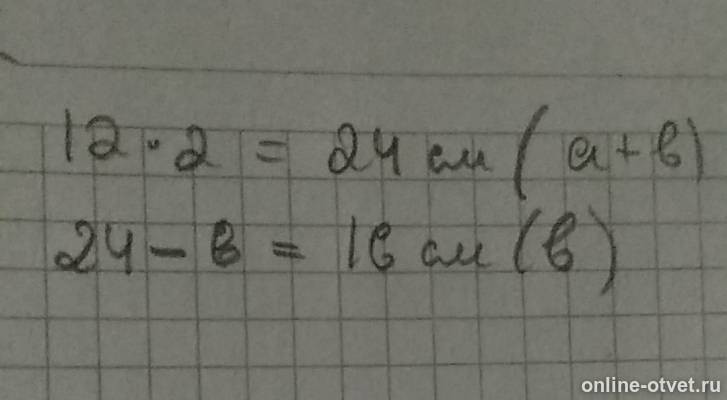 12 · 2 = 24 см (а+в)
24 – 8 = 16 см (в)
online-otvet.ru